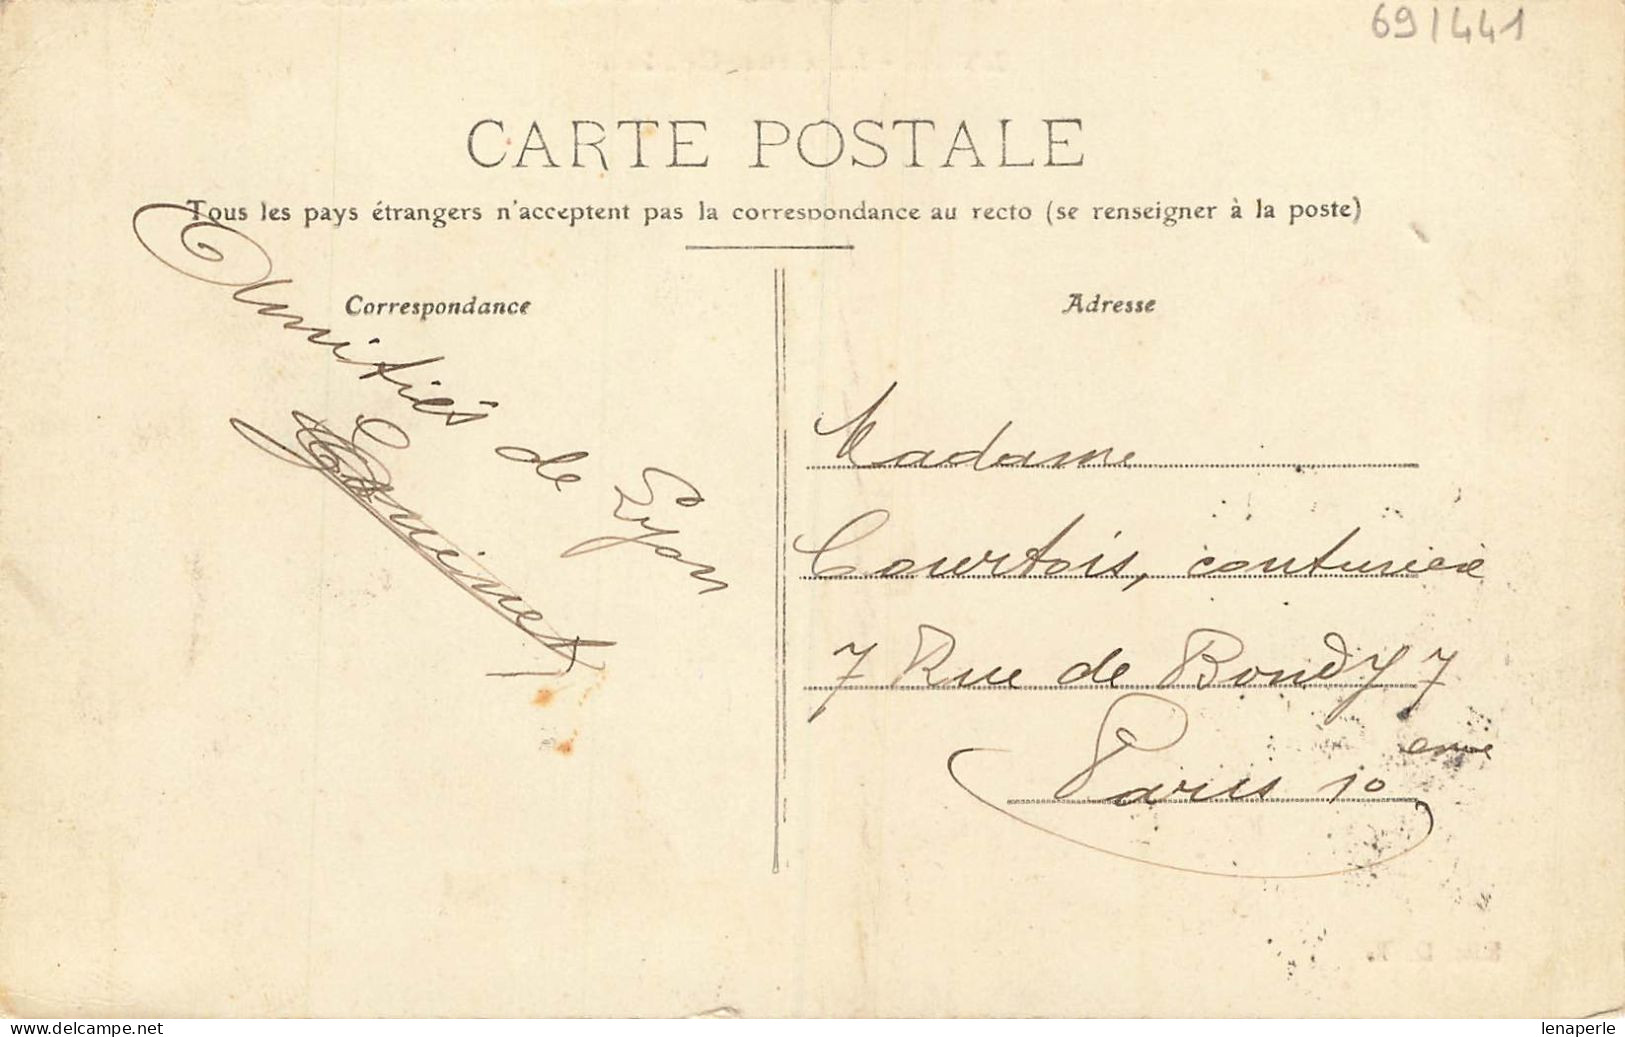 69/441
CARTE POSTALE
Tous les pays étrangers n'acceptent pas la correspondance au recto (se renseigner à la poste)
Correspondance
Amitiés de Lyon
Adresse
Madame
Courtois, couturière
7 Rue de Bondy 7
Paris 10eme
www.delcampe.net
lenaperle